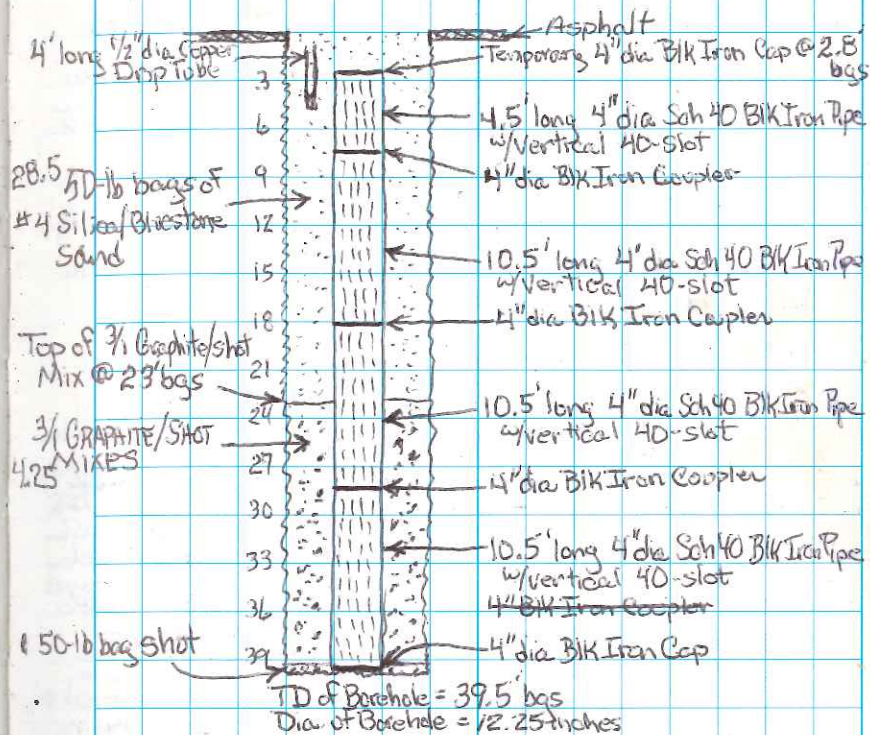 Asphalt
4' long 1/2" dia Copper
Drip Tube
Temporary 4" dia Blk Iron Cap @ 2.8'
bgs
3
4.5' long 4" dia Sch 40 Blk Iron Pipe
w/vertical 40-slot
6
4" dia Blk Iron Coupler
9
28.5 50-lb bags of
#4 Silica/Bluestone
Sand
12
10.5' long 4" dia Sch 40 Blk Iron Pipe
w/vertical 40-slot
15
18
4" dia Blk Iron Coupler
Top of 3/1 Graphite/shot
Mix @ 23' bgs
21
24
10.5' long 4" dia Sch40 Blk Iron Pipe
w/vertical 40-slot
3/1 GRAPHITE/SHOT
MIXES
4.25
27
4" dia Blk Iron Coupler
30
33
10.5' long 4" dia Sch40 Blk Iron Pipe
w/vertical 40-slot
36
4" Blk Iron Coupler
50-lb bag shot
39
4" dia Blk Iron Cap
TD of Borehole = 39.5' bgs
Dia. of Borehole = 12.25 inches